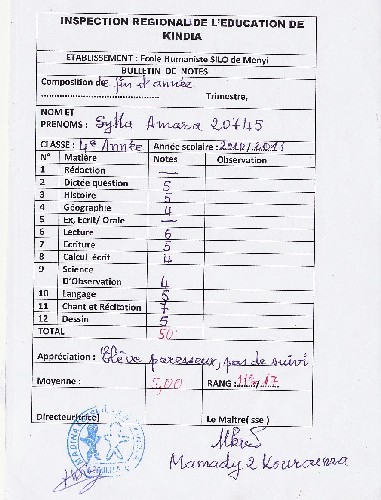 INSPECTION REGIONAL DE L'EDUCATION DE
KINDIA
ETABLISSEMENT : Ecole Humaniste SILO de Menyi
BULLETIN DE NOTES
Composition de fin d'année
Trimestre,
NOM ET
PRENOMS : Sylla Amara 20745
CLASSE : 4e Année Année scolaire :
N° Matière Notes Observation
1 Rédaction —
2 Dictée question 5
3 Histoire 5
4 Géographie 4
5 Ex, Ecrit/ Orale —
6 Lecture 6
7 Ecriture 5
8 Calcul écrit 4
9 Science
D'Observation 4
10 Langage 5
11 Chant et Récitation 7
12 Dessin 5
TOTAL 50
Appréciation : Elève paresseux, pas de suivi
Moyenne : 5,00 RANG :
Directeur(trice) Le Maître( sse )
Mamady 2 Kourouma